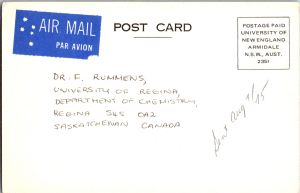 AIR MAIL
PAR AVION
POST CARD
POSTAGE PAID
UNIVERSITY OF
NEW ENGLAND
ARMIDALE
N.S.W., AUST.
2351
DR. F. RUMMENS,
UNIVERSITY OF REGINA,
DEPARTMENT OF CHEMISTRY,
REGINA S4S 0A2
SASKATCHEWAN CANADA.
Sent Aug /75